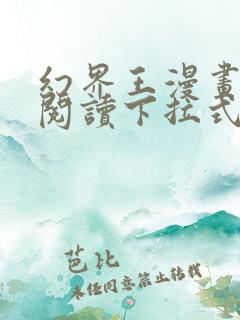 幻界王漫畫
閱讀下拉式
芭比
未任同意禁止轉載